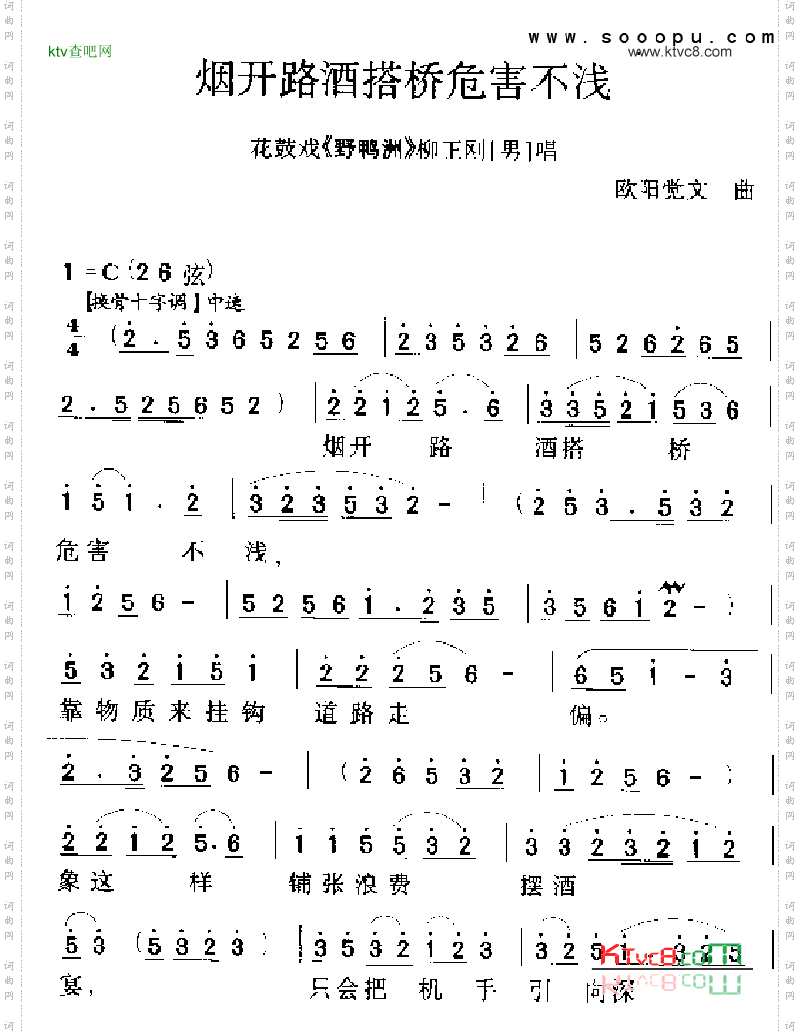 www.sooopu.com
ktv查吧网
www.ktvc8.com
烟开路酒搭桥危害不浅
花鼓戏《野鸭洲》柳正刚[男]唱
欧阳觉文 曲
1=C(2 6 弦)
中速
4/4 (2. 5 3 6 5 2 5 6 | 2 3 5 3 2 6 | 5 2 6 2 6 5 |
2. 5 2 5 6 5 2) | 2 2 1 2 5. 6 | 3 3 5 2 1 5 3 6
烟开 路 酒搭 桥
1 5 1. 2 | 3 2 3 5 3 2 - | (2 5 3 3. 5 3 2 |
危害 不 浅,
1 2 5 6 - | 5 2 5 6 1. 2 3 5 | 3 5 6 1 2 - )
5 3 2 1 5 1 | 2 2 2 5 6 - | 6 5 1 - 3
靠物质来挂钩 道路走 偏。
2. 3 2 5 6 - | (2 6 5 3 2 | 1 2 5 6 - ) |
2 2 1 2 5. 6 | 1 1 5 5 3 2 | 3 3 2 3 2 1 2 |
象这 样 铺张浪费 摆酒
5 3 (5 3 2 3) | 3 5 3 2 1 2 3 | 3 2 5 1. 3 2 5
宴, 只会把 机 手 引 向深
KTVC8.com
词曲网